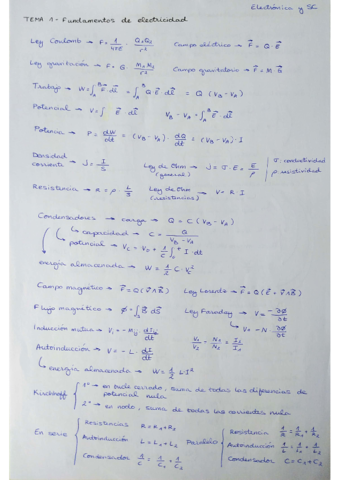 Electrónica y SC
TEMA 1 - Fundamentos de electricidad
Ley Coulomb → F = 1/4πε · Q1Q2/r² Campo eléctrico → F⃗ = Q E⃗
Ley gravitación → F = G M1M2/r² Campo gravitatorio → F⃗ = M G⃗
Trabajo → W = ∫_A^B F⃗ dl⃗ = ∫_A^B Q E⃗ dl⃗ = Q (VB - VA)
Potencial → V = ∫ E⃗ dl⃗ VB - VA = ∫_A^B E⃗ dl⃗
Potencia → P = dW/dt = (VB - VA) · dQ/dt = (VB - VA) · I
Densidad corriente → J = I/S Ley de Ohm (general) → J = σ · E = E/ρ | σ: conductividad ρ: resistividad
Resistencia → R = ρ · L/S Ley de Ohm (resistencias) → V = R I
Condensadores → carga → Q = C (VB - VA)
↳ capacidad → C = Q/(VB - VA)
↳ potencial → Vc = Vo + 1/C ∫ I dt
↳ energía almacenada → W = 1/2 C Vc²
Campo magnético → F⃗ = Q (v⃗ ∧ B⃗) Ley Lorentz → F⃗ = Q (E⃗ + v⃗ ∧ B⃗)
Flujo magnético → Φ = ∫_S B⃗ dS⃗ Ley Faraday → V = -∂Φ/∂t
↳ V = -N ∂Φ/∂t
Inducción mutua →
Autoinducción → V = - L · dI/dt
↳ energía almacenada → W = 1/2 L I²
Kirchhoff { 1º → en bucle cerrado, suma de todas las diferencias de potencial nula
2º → en nodo, suma de todas las corrientes nula
En serie { Resistencias R = R1 + R2
Autoinducción L = L1 + L2
Condensador 1/C = 1/C1 + 1/C2
Paralelo { Resistencia 1/R = 1/R1 + 1/R2
Autoinducción 1/L = 1/L1 + 1/L2
Condensador C = C1 + C2